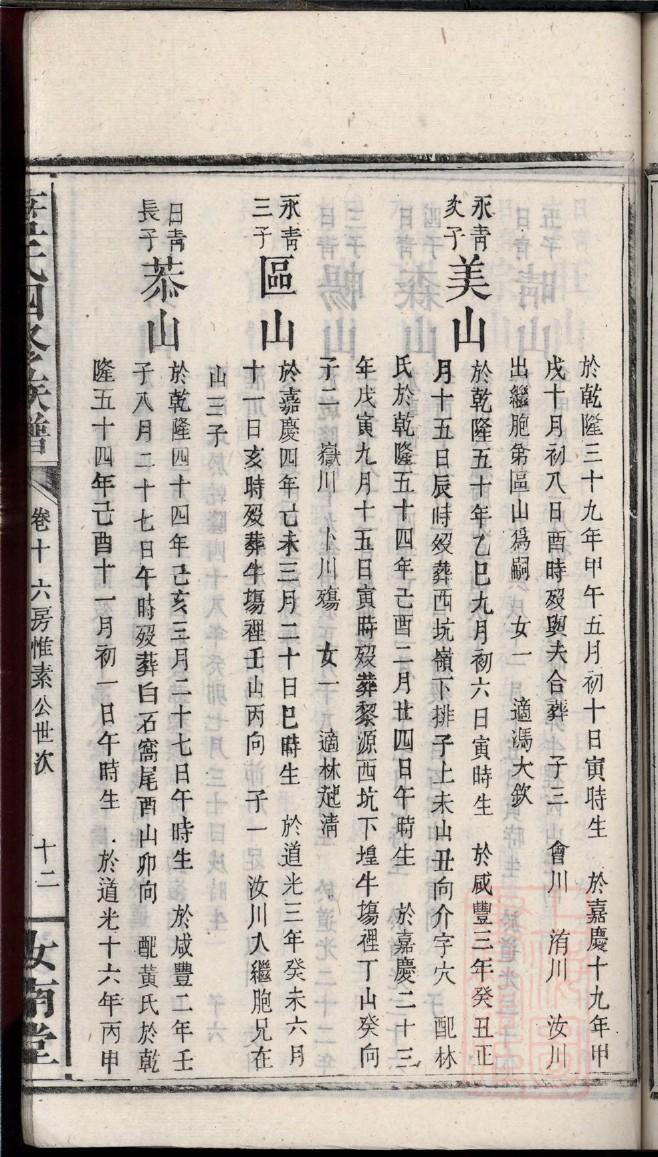 於乾隆三十九年甲午五月初十日寅時生 於嘉慶十九年甲
戌十月初八日酉時歿與夫合葬 子三 會川 洧川 汝川
出繼胞弟區山爲嗣 女一 適馮大欽
永青次子 美山 於乾隆五十年乙巳九月初六日寅時生 於咸豐三年癸丑正
月十五日辰時歿葬西坑嶺下排子上未山丑向介字穴 配林
氏於乾隆五十四年己酉二月廿四日午時生 於嘉慶二十三
年戊寅九月十五日寅時歿葬黎源西坑下堭牛塲裡丁山癸向
子二 嶽川 卜川殤 女一 適林起清
永青三子 區山 於嘉慶四年己未三月二十日巳時生 於道光三年癸未六月
十一日亥時歿葬牛塲裡壬山丙向 子一 汝川入繼胞兄在
山三子
日青長子 恭山 於乾隆四十四年己亥三月二十七日午時生 於咸豐二年壬
子八月二十七日午時歿葬白石窩尾酉山卯向 配黃氏於乾
隆五十四年己酉十一月初一日午時生 於道光十六年丙申
氏四修族譜 卷十 六房惟素公世次 十二 汝南堂